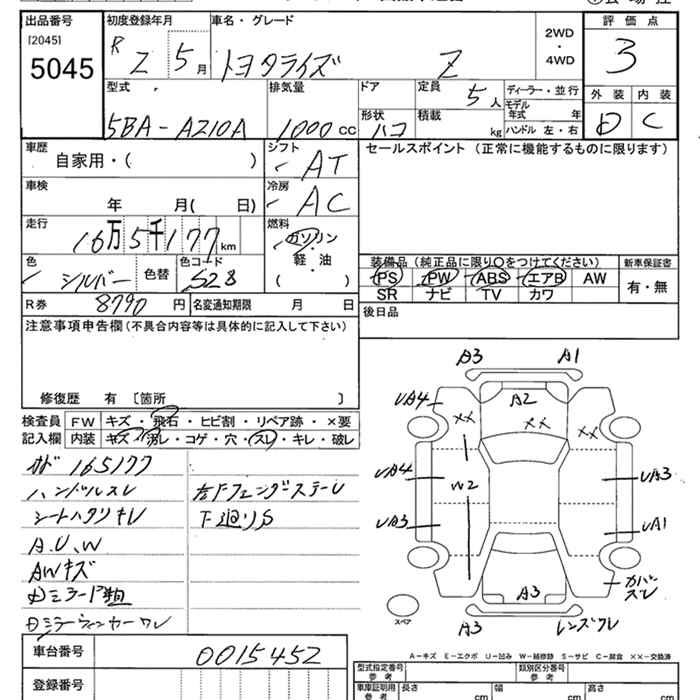 出品番号 初度登録年月 車名・グレード 評価点
[2045] R 2 5月 トヨタライズ Z 2WD・4WD 3
5045
型式 排気量 ドア 定員 5人 ディーラー・並行 外装 内装
5BA-A210A 1000cc 形状 ハコ 積載 kg モデル年式 年 D C
ハンドル 左・右
車歴 シフト セールスポイント (正常に機能するものに限ります)
自家用・( ) AT
車検 冷房
年 月( 日) AC
走行 燃料
16万5千177km ガソリン・軽・油
色 色替 色コード ( )
シルバー S28
装備品 (純正品に限り○をつけてください) 新車保証書
PS PW ABS エアB AW 有・無
SR ナビ TV カワ
R券 8790円 名変通知期限 月 日
後日品
注意事項申告欄 (不具合内容等は具体的に記入して下さい)
修復歴 有 [箇所 ]
検査員記入欄 FW キズ・飛石・ヒビ割・リペア跡・×要
内装 キズ・汚レ・コゲ・穴・スレ・キレ・破レ
オド 165177
ハンドルスレ 左Fフェンダーステーレ
シートハクリキレ 下廻りS
A.U.W
AWキズ
A3 A1
UA4 A2
×× ×× ××
UA4 W2 UA3
UA3 UA1
A3 カバースレ
スペア A3 レンズワレ
A-キズ E-エクボ U-凹み W-補修跡 S-サビ C-腐食 ××-交換済
車台番号 0015452
登録番号
型式指定番号 参考 類別区分番号 参考
車庫証明用 参考 長さ cm 幅 cm 高さ cm